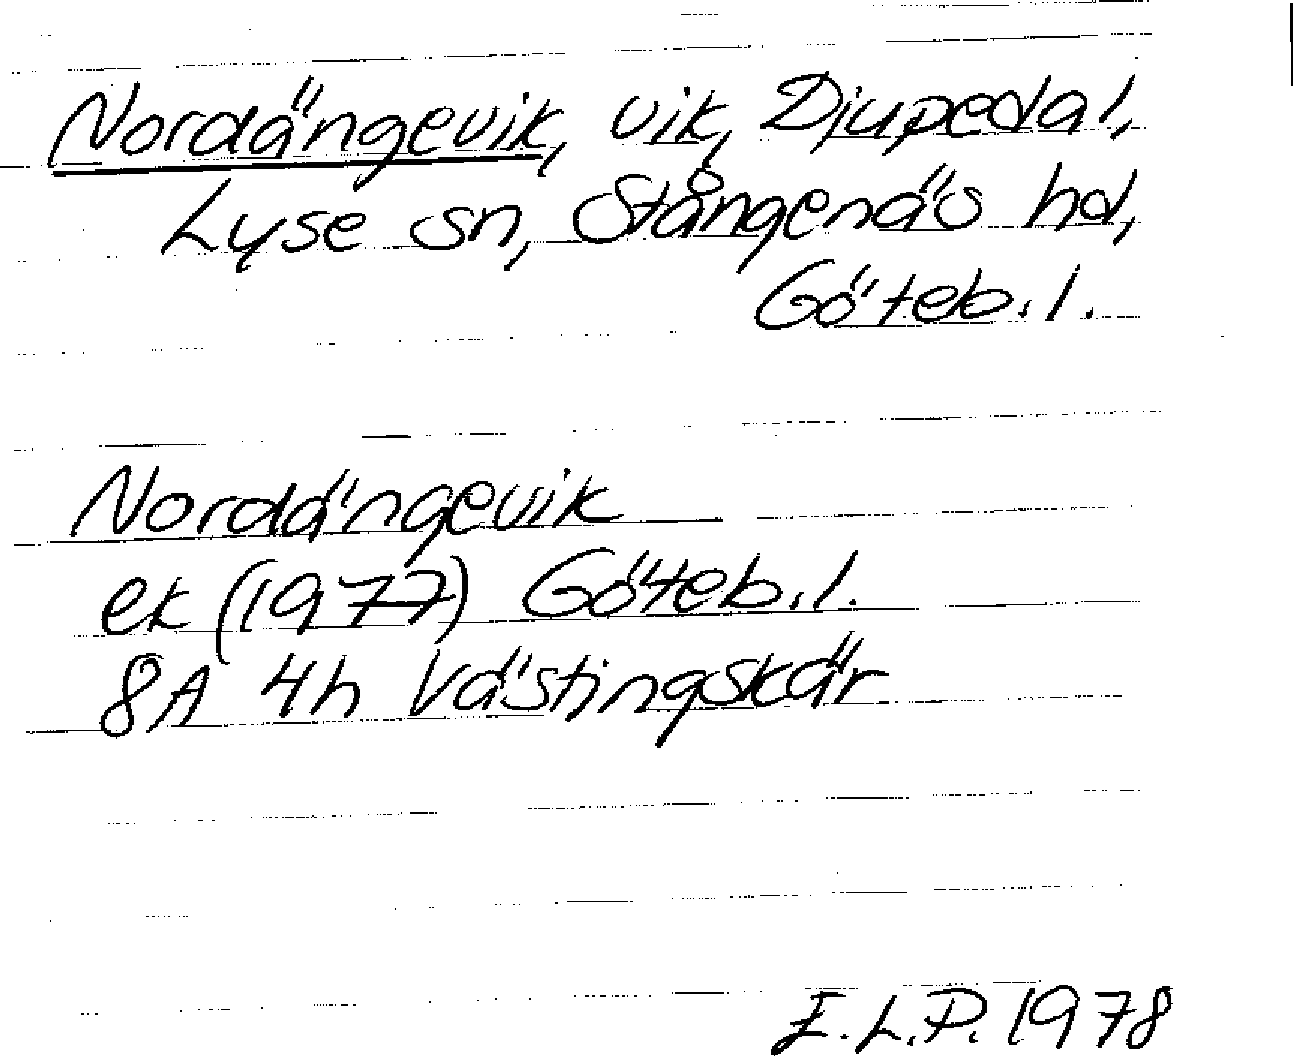 Nordängevik, vik, Djupedal,
Lyse sn, Stångenäs hd,
Göteb. l.
Nordängevik
ek (1977) Göteb. l.
8A 4h Västingskär
E.L.P. 1978